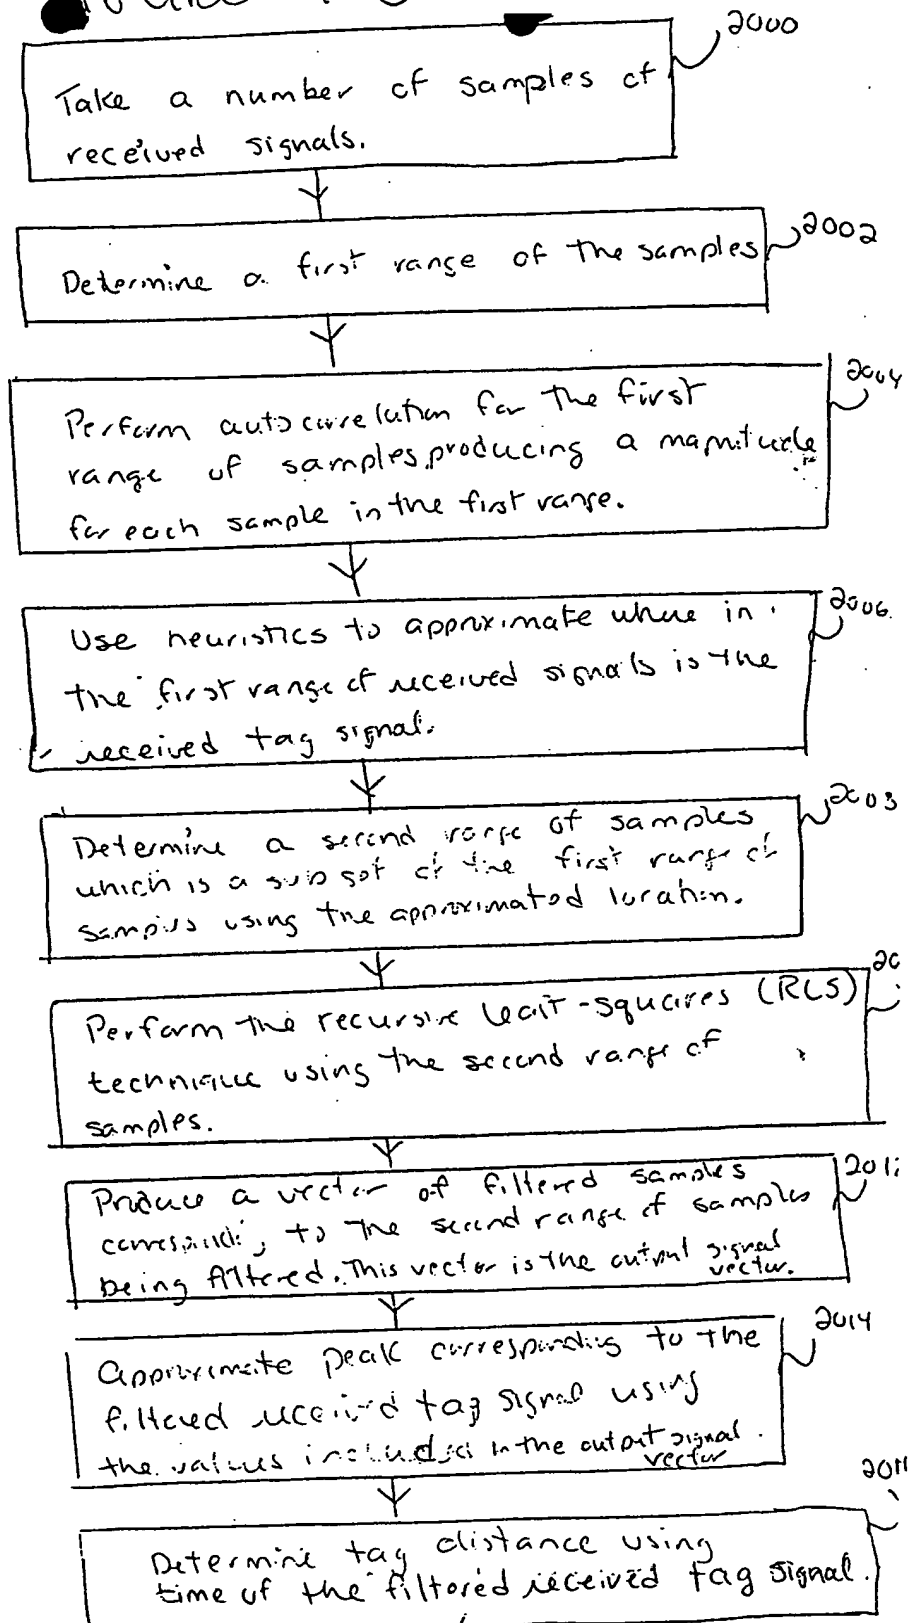 2000
Take a number of samples of
received signals.
2002
Determine a first range of the samples
2004
Perform autocorrelation for the first
range of samples, producing a magnitude
for each sample in the first range.
2006
Use heuristics to approximate where in
the first range of received signals is the
received tag signal.
2008
Determine a second range of samples
which is a subset of the first range of
samples using the approximated location.
20
Perform the recursive least-squares (RLS)
technique using the second range of
samples.
201
Produce a vector of filtered samples
corresponding to the second range of samples
being filtered. This vector is the output signal
vector.
2014
Approximate peak corresponding to the
filtered received tag signal using
the values included in the output signal
vector
201
Determine tag distance using
time of the filtered received tag signal.